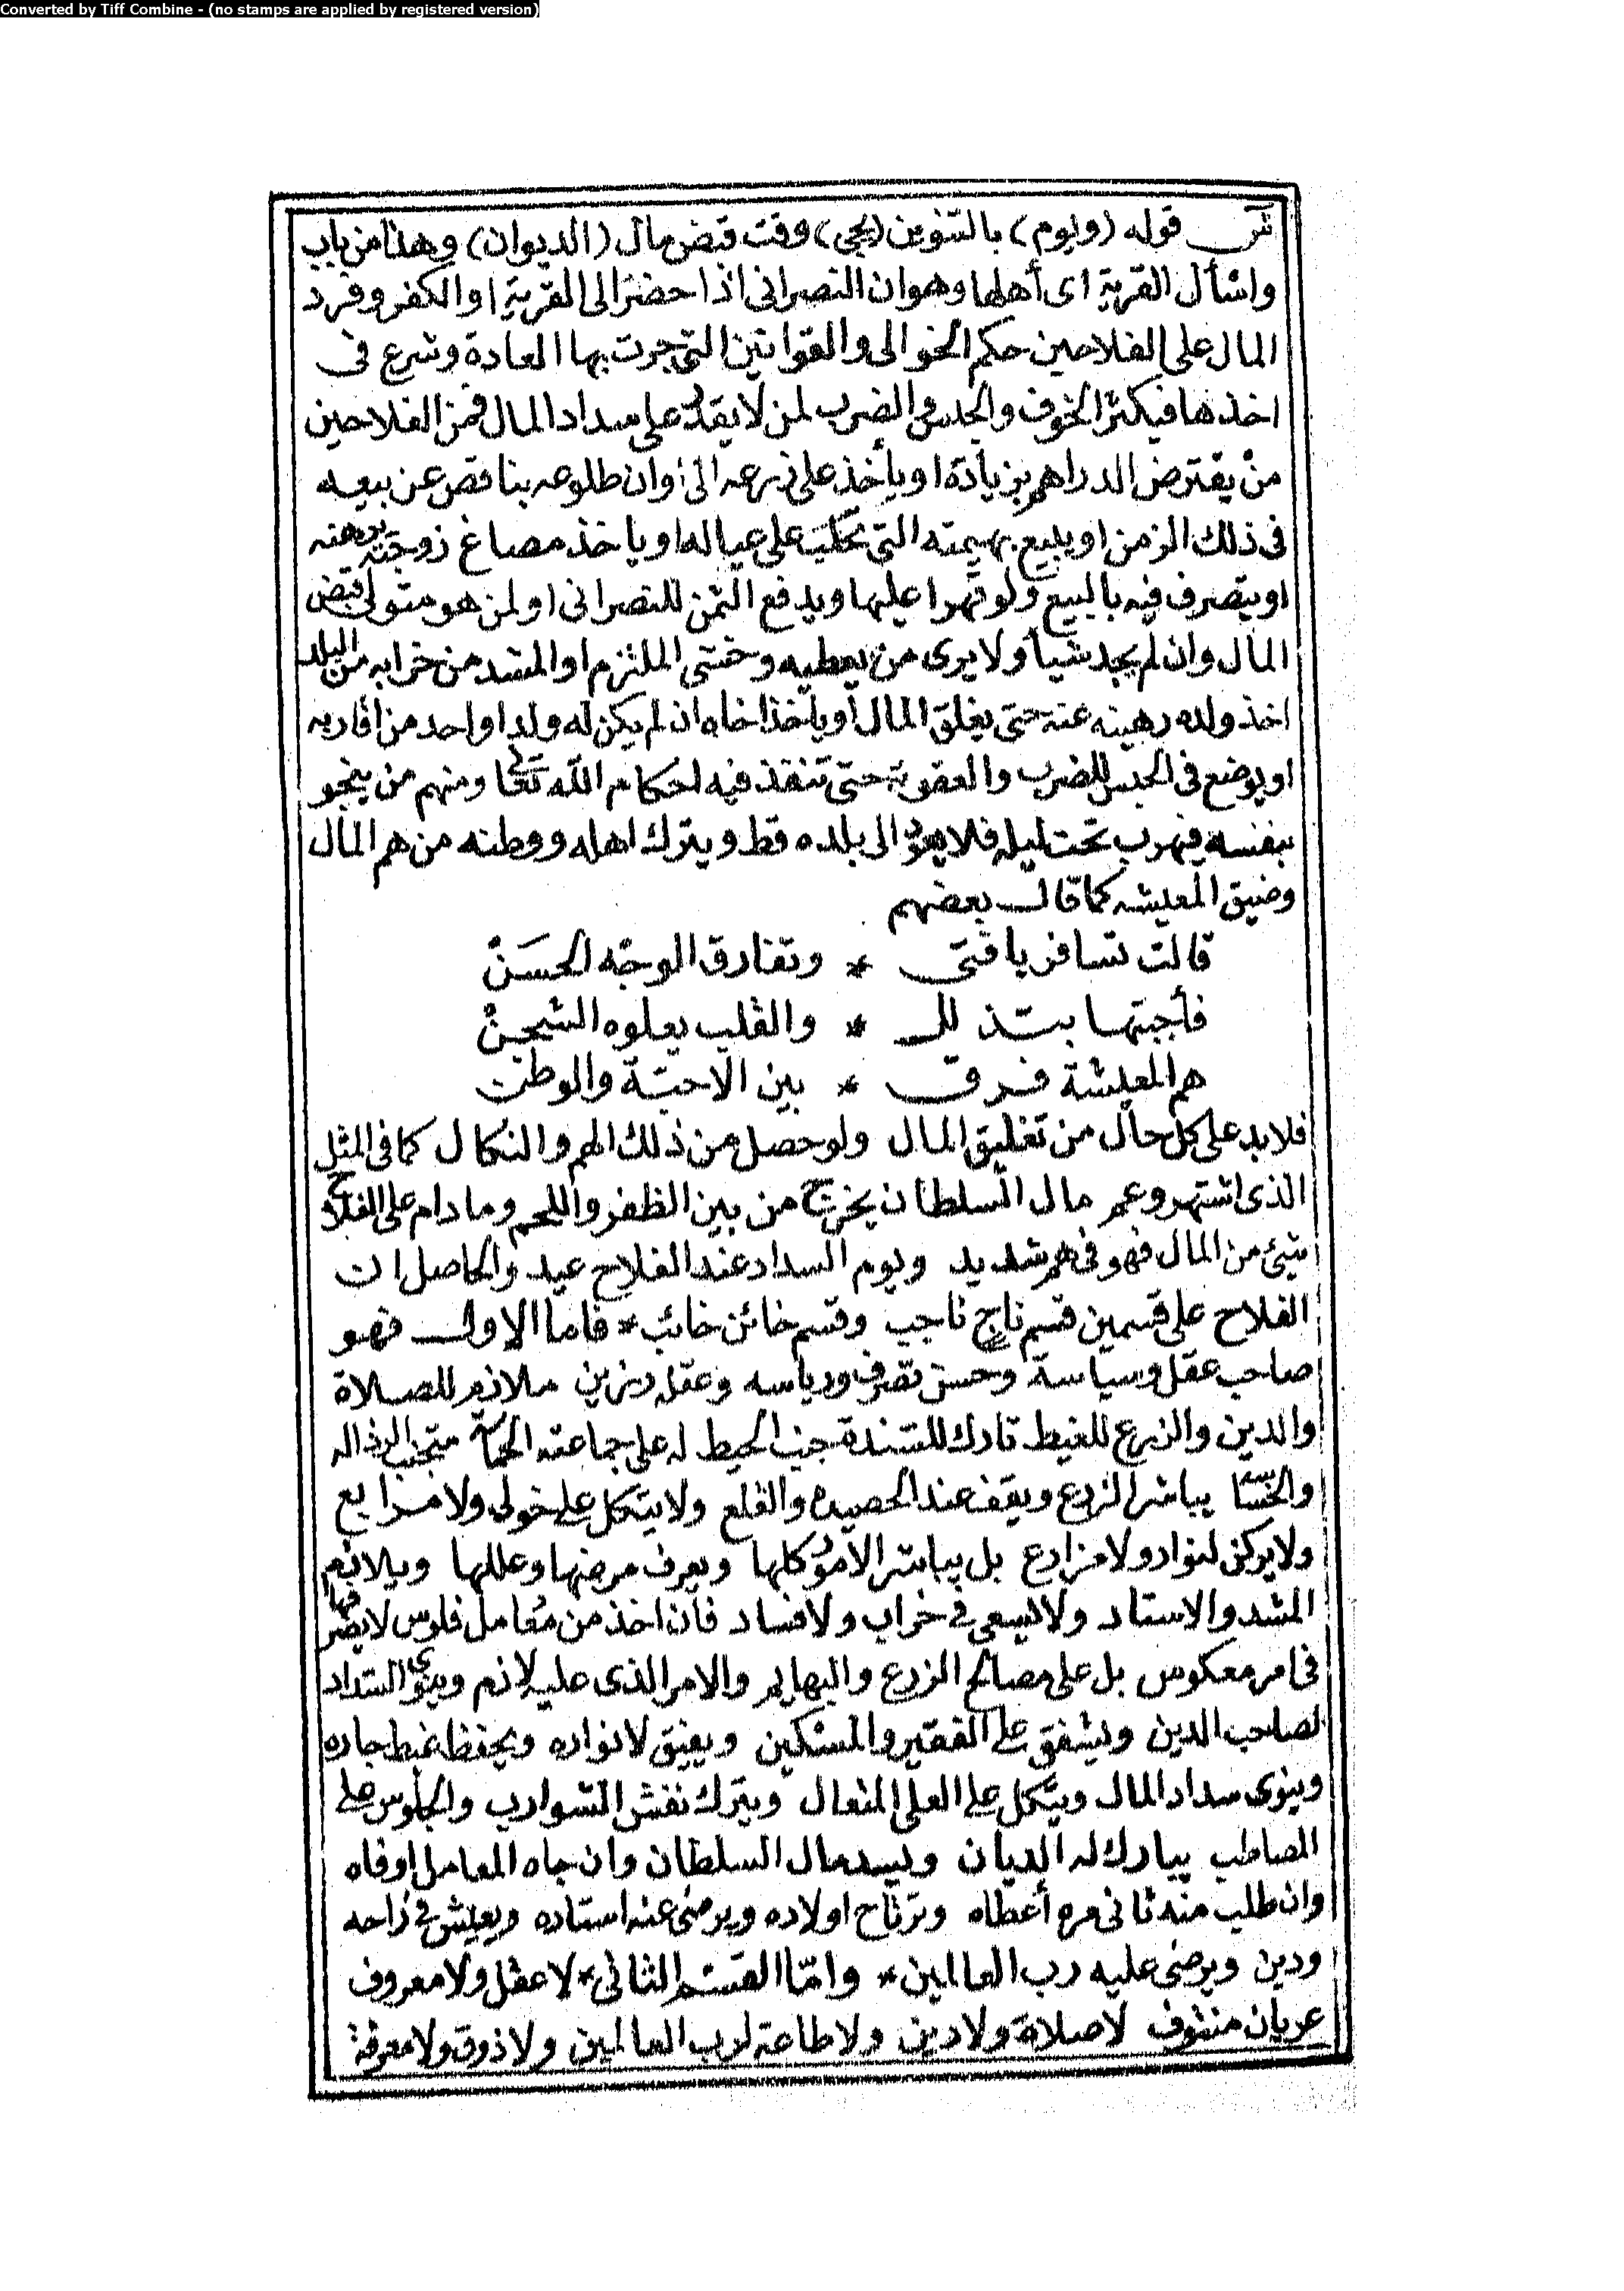 Converted by Tiff Combine - (no stamps are applied by registered version)
ش قوله (ويوم) بالتنوين (يجي) وقت قبض مال (الديوان) وهذا من باب
واسأل القرية اى أهلها وهو ان النصرانى اذا حضر الى القرية او الكفر وفرد
المال على الفلاحين حكم الخوالى والقوانين التى جرت بها العادة وشرع فى
اخذها فيكثر الخوف والحبس والضرب لمن لا يقدر على سداد المال فمن الفلاحين
من يقترض الدراهم بزيادة او يأخذ على زرعه الى اوان طلوعه بناقص عن بيعه
فى ذلك الزمن او يبيع بهيمته التى تحلب على عياله او ياخذ مصاغ زوجته يرهنه
او يتصرف فيه بالبيع ولو قهرا عليها ويدفع الثمن للنصرانى او لمن هو متولى قبض
المال وان لم يجد شيأ ولا يرى من يعطيه وخشى الملتزم او المشد من خرابه من البلد
اخذ ولده رهينه عنه حتى يغلق المال أو ياخذ اخاه ان لم يكن له ولد او احد من اقاربه
او يوضع فى الحبس للضرب والعقوبة حتى تنفذ فيه احكام الله تعالى ومنهم من ينجو
بنفسه فيهرب تحت ليله فلا يعود الى بلده قط ويترك اهله ووطنه من هم المال
وضيق المعيشه كما قال بعضهم
قالت تسافر يا فتى * وتفارق الوجه الحسن
فأجبتها بتذلل * والقلب يعلوه الشجن
هم المعيشة فرق * بين الاحبة والوطن
فلا بد على كل حال من تغليق المال ولو حصل من ذلك الهم والنكال كما فى المثل
الذى اشتهر وعم مال السلطان يخرج من بين الظفر واللحم وما دام على الفلاح
شيئ من المال فهو فى هم شديد ويوم السداد عند الفلاح عيد والحاصل ان
الفلاح على قسمين قسم ناجح ناجب وقسم خائن خائب * فاما الاول فهو
صاحب عقل وسياسة وحسن تصرف ورياسه وعقل رزين ملازم للصلاة
والدين والزرع للغيط تارك للشندة جنب الحيط له على جماعته الحماسة متجنب الرذاله
والخساسه يباشر الزرع ويقف عند الحصيده والقلع ولا يتكل على خولى ولا مرابع
ولا يركن لنوار ولا مزارع بل يباشر الامور كلها ويعرف مرضها وعللها ويلازم
المشد والاستاد ولا يسعى فى خراب ولا فساد فان اخذ من معامل فلوس لا يصرفها
فى امر معكوس بل على مصالح الزرع والبهايم والامر الذى عليه لازم وينوى السداد
لصاحب الدين ويشفق على الفقير والمسكين ويفيق لانواره ويحفظ غيط جاره
وينوى سداد المال ويتكل على العلى المتعال ويترك نفش الشوارب والجلوس على
المصاطب يبارك له الديان ويسد مال السلطان وان جاه المعامل اوفاه
وان طلب منه ثانى مره أعطاه وترتاح اولاده ويرضى عنه استاده ويعيش فى راحه
ودين ويرضى عليه رب العالمين * وامّا القسم الثانى * لا عقل ولا معروف
عريان منتوف لا صلاة ولا دين ولا طاعة لرب العالمين ولا ذوق ولا معرفة